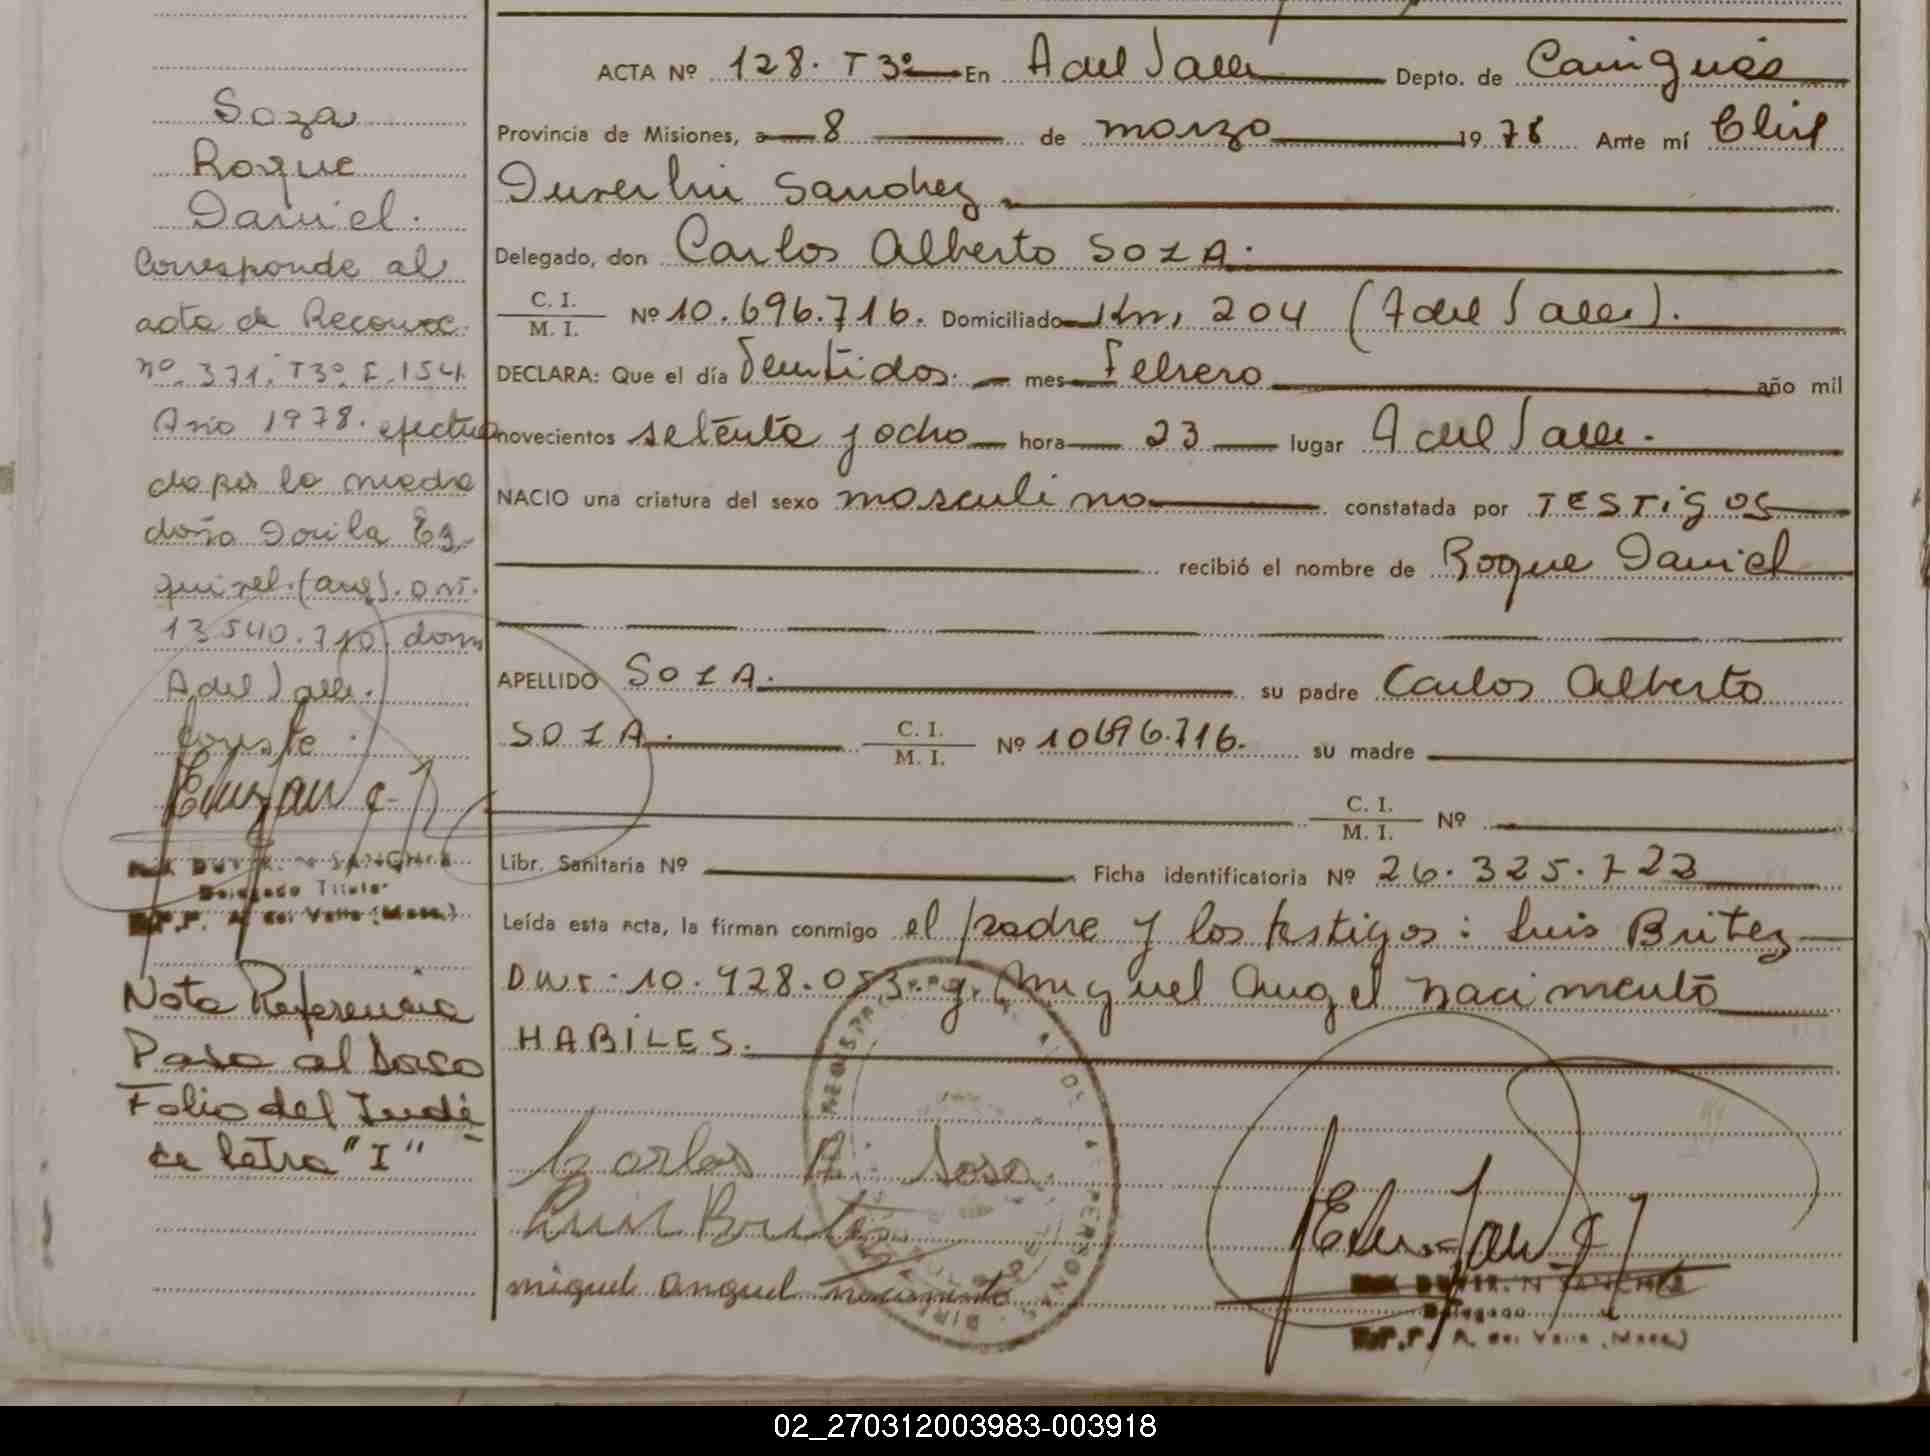 Soza
Roque
Daniel.
Corresponde al
acta de Reconoc.
nº. 371. T3º F. 154.
Año 1978. efectua
do por la madre
doña Dorila Es
quivel. (arg). DNI.
13.540.710 dom
A del Valle.
Conste.
DUVER. N SANCHEZ
Delegado Titular
A. del Valle (Mnes.)
Nota Referencia
Pasa al Dorso
Folio del Indi
ce letra "I"
ACTA Nº 128. T 3º En A del Valle Depto. de Cainguás
Provincia de Misiones, a 8 de marzo 1978 Ante mí
Duverlin Sanchez
Delegado, don Carlos Alberto SOZA.
C. I. / M. I. Nº 10.696.716. Domiciliado Km, 204 (A del Valle).
DECLARA: Que el día Veintidos. mes Febrero año mil
novecientos setenta y ocho hora 23 lugar A del Valle.
NACIO una criatura del sexo masculino constatada por TESTigos
recibió el nombre de Roque Daniel
APELLIDO SOZA. su padre Carlos Alberto
SOZA. C. I. / M. I. Nº 10696.716. su madre
C. I. / M. I. Nº
Libr. Sanitaria Nº Ficha identificatoria Nº 26.325.723
Leída esta acta, la firman conmigo el padre y los testigos: Luis Britez
DNI: 10.928.053. y Miguel Angel Nacimento
HABILES.
Carlos A. Sosa
Luis Britez
miguel anguel nacimento
DUVER. N SANCHEZ
Delegado
A. del Valle (Mnes.)
02_270312003983-003918